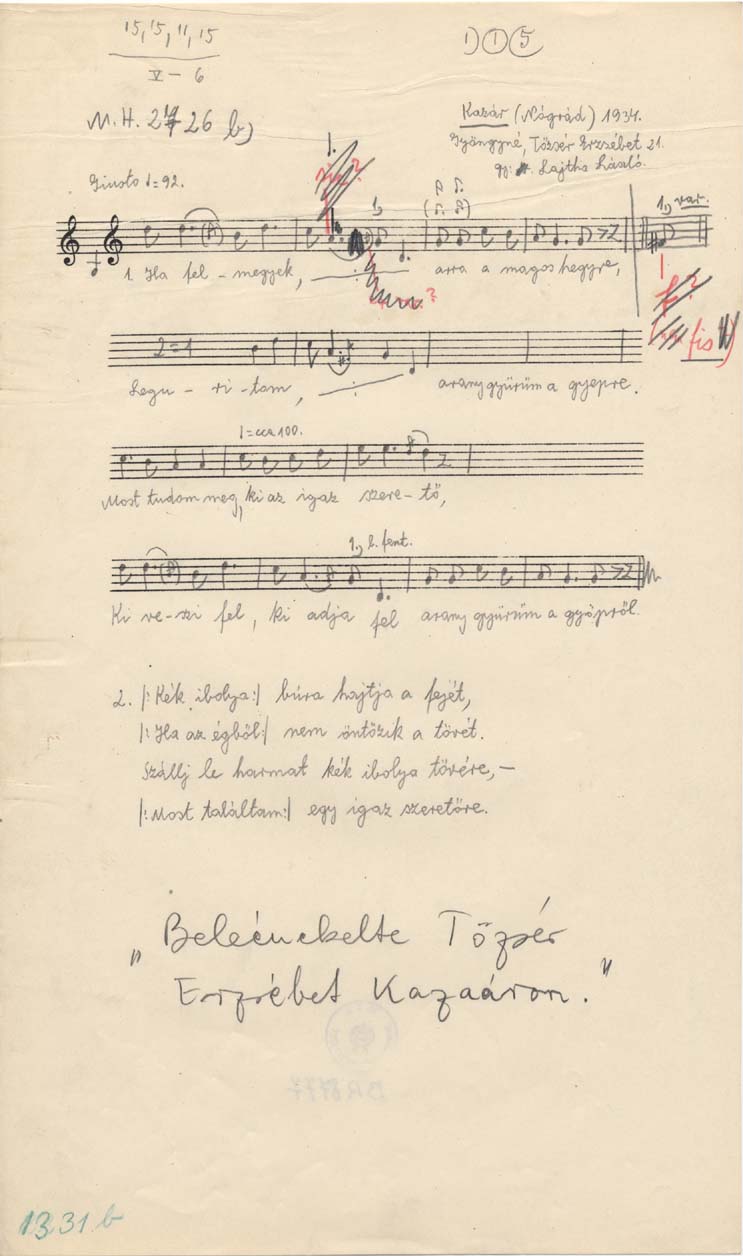 15, 15, 11, 15
1) 1 5
V – 6
M. H. 26 b)
Kazár (Nógrád) 1934.
Gyöngyné, Tőzsér Erzsébet 21.
gy: Lajtha László.
Giusto ♩= 92.
1.
1.) var.
1. Ha fel – megyek, ·/· arra a magos hegyre,
fis
2=1
Legu – rí – tom, ·/· aranygyűrűm a gyepre.
♩= cca 100.
Most tudom meg, ki az igaz szere – tő,
1.) l. fent.
Ki ve – szi fel, ki adja fel arany gyűrűm a gyöpről.
2. |: Kék ibolya :| búra hajtja a fejét,
|: Ha az égből :| nem öntözik a tövét.
Szállj le harmat kék ibolya tövére, –
|: Most találtam :| egy igaz szeretőre.
„Beleénekelte Tőzsér
Erzsébet Kazaáron."
1331 b